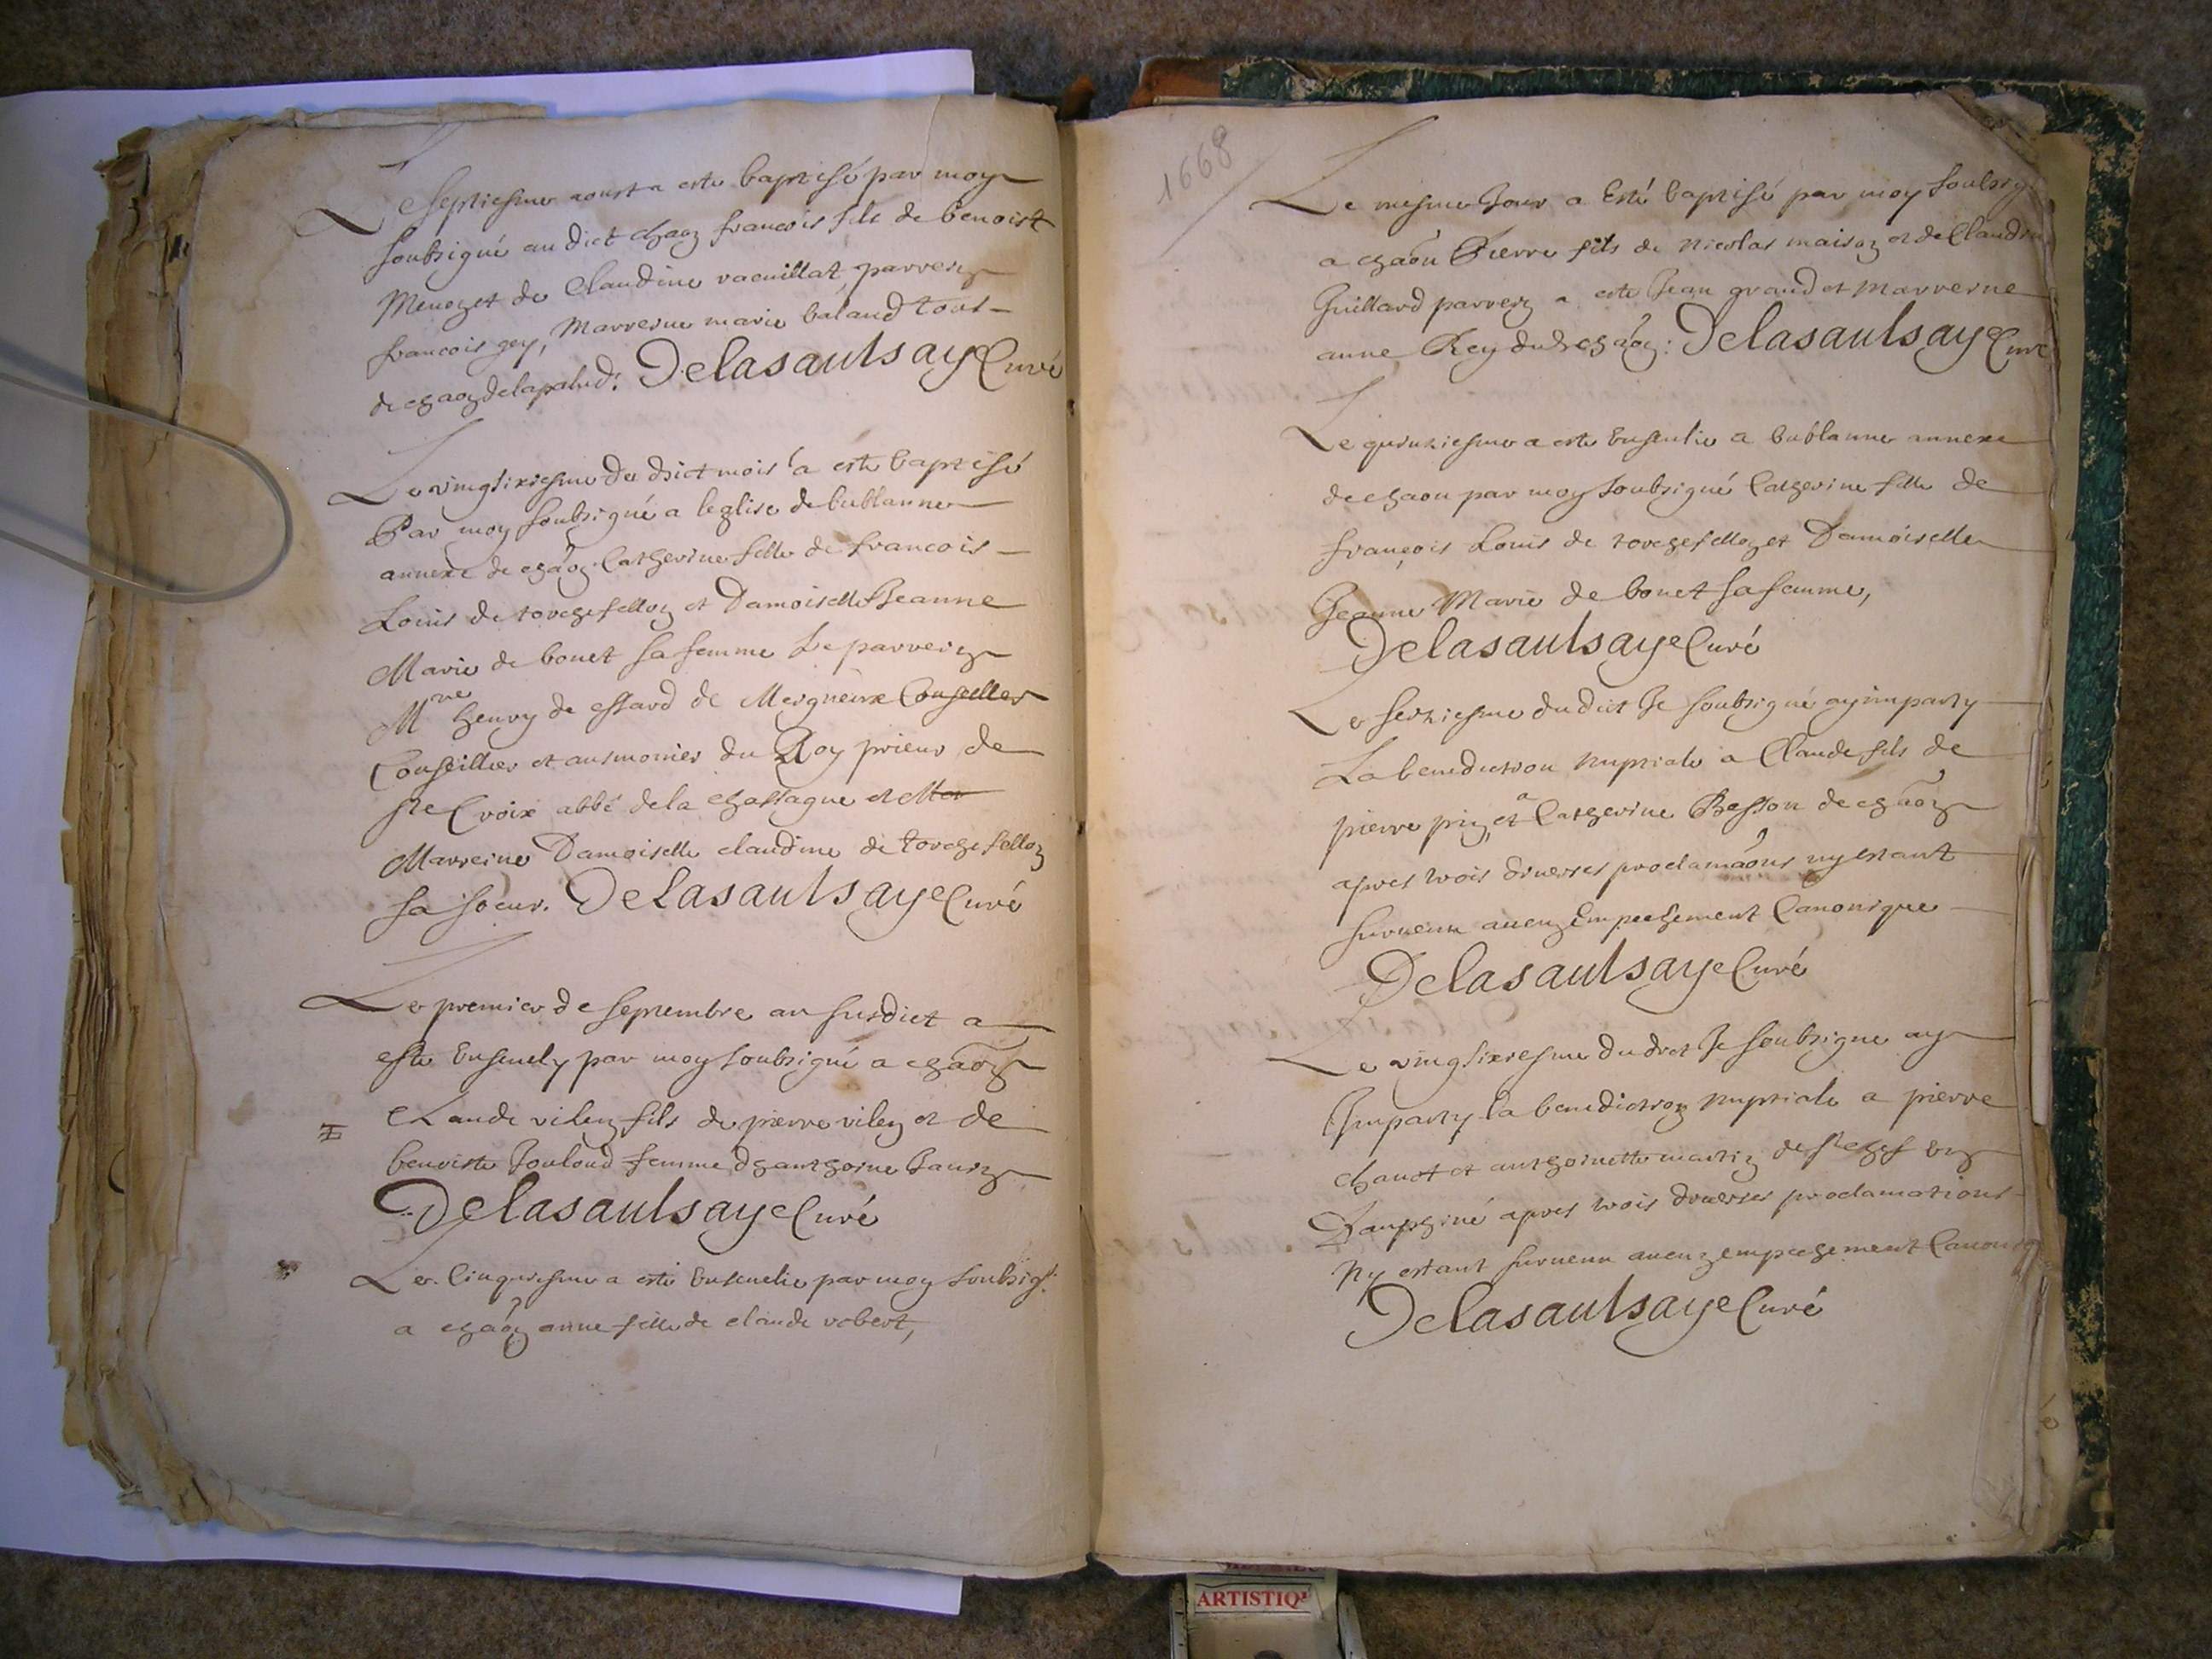 Le septiesme aoust a esté baptisé par moy
soubsigné au dict chaon francois fils de benoist
et de Claudine vacuillat, parrein
francois gey, Marreine marie baland tous
de chaon delapalud: Delasaulsaye Curé
Le vingtsixiesme du dict mois a esté baptisé
Par moy soubsigné a leglise de bublanne
annexe de chaōn Catherine fille de francois
Louis de torchefellon et Damoiselle Jeanne
Marie de bouet sa femme Le parrein
Mre henry de essard de Meigneux Conseiller
Conseiller et ausmonier du Roy prieur de
ste Croix abbé dela chassagne et Mar
Marreine Damoiselle claudine de torchefellon
sa soeur. Delasaulsaye Curé
Le premier de septembre an susdict a
esté Enseuely par moy soubsigné a chaōn
Claude vilen fils de pierre vilen et de
benoiste Touloud femme dhanthoine
Delasaulsaye Curé
Le Cinquiesme a esté Enseuelie par moy soubsigé
a chaōn anne fille de claude robert,
1668
Le mesme Jour a Esté baptisé par moy soubsig
a chaōn Pierre fils de nicolas maison et de Claudine
Guillard parrein a esté Jean grand et marreine
anne Rey dudt chaōn: Delasaulsaye Curé
Le quinziesme a esté Enseuelie a bublanne annexe
de chaon par moy soubsigné Catherine fille de
françois Louis de torchefellon et Damoiselle
Jeanne Marie de bouet sa femme,
Delasaulsaye Curé
Le seziesme du dict Je soubsigné ay imparty
La benediction nuptiale a Claude fils de
pierre et a Catherine Besson de chaōn
apres trois diuerses proclamaōns ny estant
suruenu aucun Empechement Canonique
Delasaulsaye Curé
Le vingtsixiesme du dict Je soubsigne ay
Imparty la benediction nuptiale a pierre
chanet et anthoinette martin de st chef en
Dauphiné apres trois diuerses proclamations
Ny estant suruenu aucun empechement Canoniq
Delasaulsaye Curé
ARTISTIQ